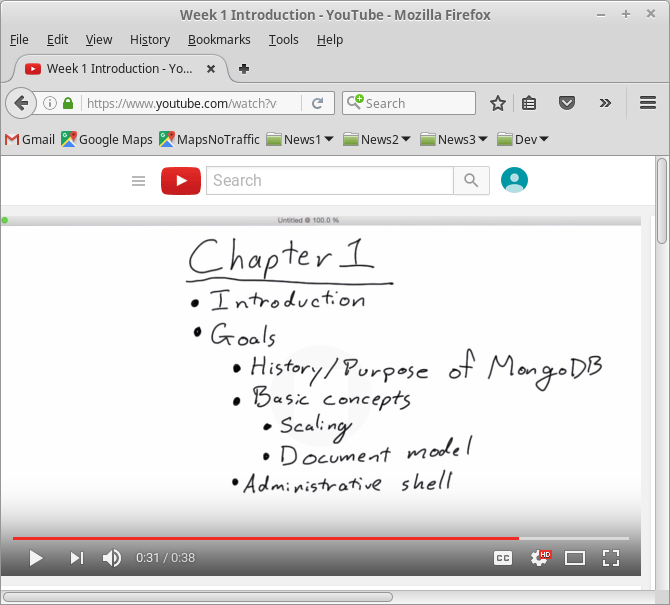 Week 1 Introduction - YouTube - Mozilla Firefox
File Edit View History Bookmarks Tools Help
Week 1 Introduction - Yo...
https://www.youtube.com/watch?v
Search
Gmail Google Maps MapsNoTraffic News1 News2 News3 Dev
Search
Untitled @ 100.0 %
Chapter 1
• Introduction
• Goals
• History/Purpose of MongoDB
• Basic concepts
• Scaling
• Document model
• Administrative shell
0:31 / 0:38 CC HD